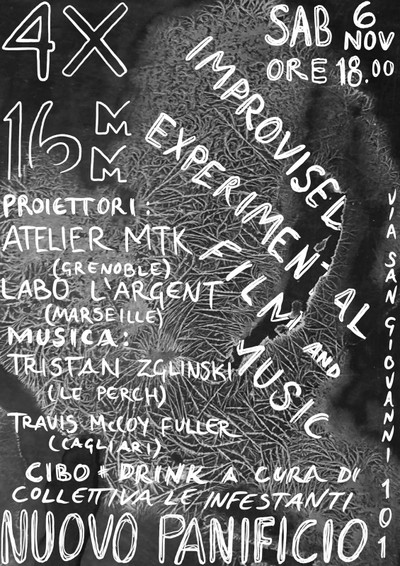 4X
16 MM
SAB 6 NOV
ORE 18.00
IMPROVISED
EXPERIMENTAL
FILM AND
MUSIC
PROIETTORI:
ATELIER MTK
(GRENOBLE)
LABO L'ARGENT
(MARSEILLE)
MUSICA:
TRISTAN ZGLINSKI
(LE PERCH)
TRAVIS McCOY FULLER
(CAGLIARI)
VIA SAN GIOVANNI 101
CIBO + DRINK A CURA DI
COLLETTIVA LE INFESTANTI
NUOVO PANIFICIO